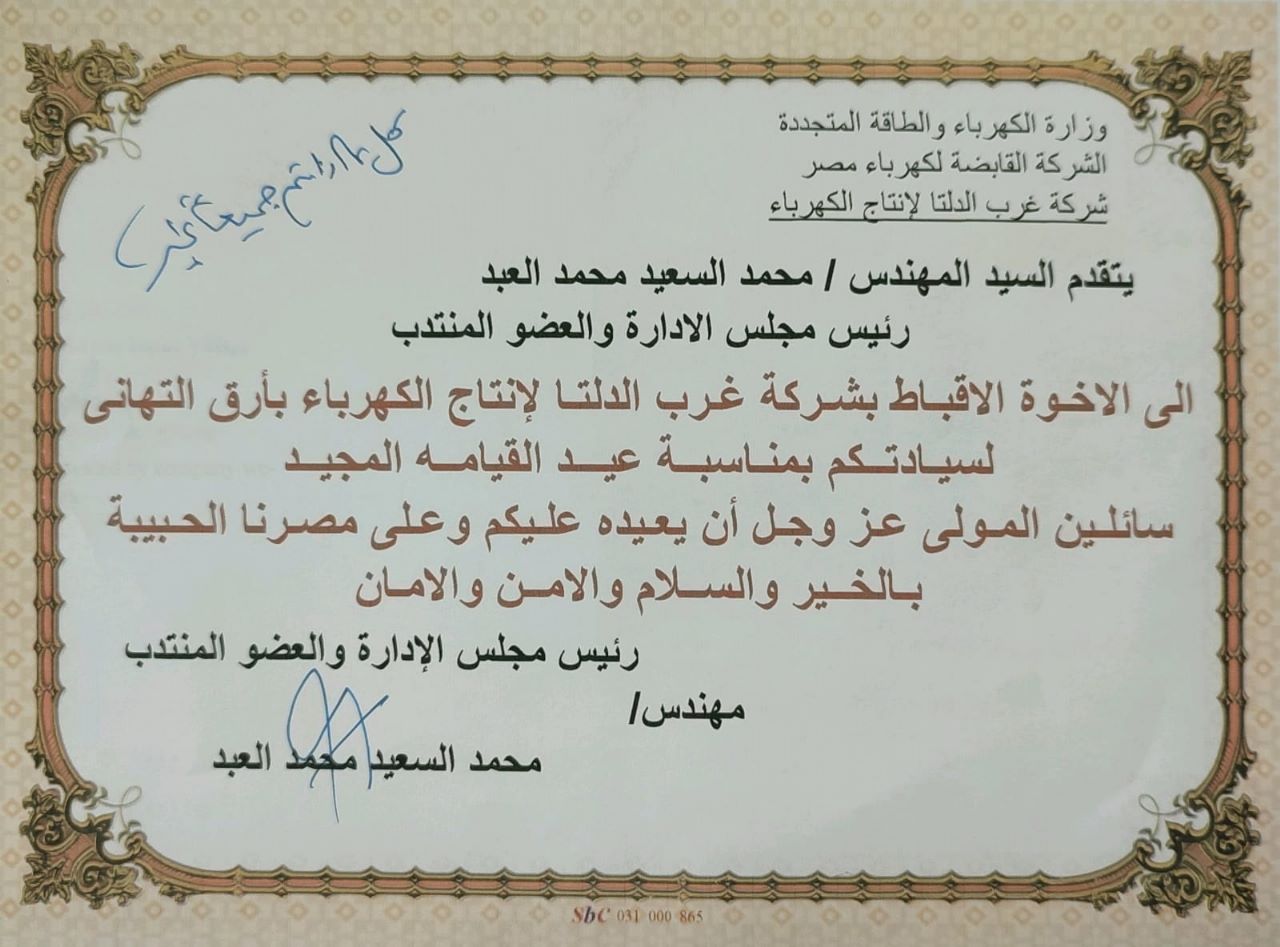 وزارة الكهرباء والطاقة المتجددة
الشركة القابضة لكهرباء مصر
شركة غرب الدلتا لإنتاج الكهرباء
كل عام وانتم جميعا بخير
يتقدم السيد المهندس / محمد السعيد محمد العبد
رئيس مجلس الادارة والعضو المنتدب
الى الاخوة الاقباط بشركة غرب الدلتا لإنتاج الكهرباء بأرق التهانى
لسيادتكم بمناسبة عيد القيامه المجيد
سائلين المولى عز وجل أن يعيده عليكم وعلى مصرنا الحبيبة
بالخير والسلام والامن والامان
رئيس مجلس الإدارة والعضو المنتدب
مهندس/
محمد السعيد محمد العبد
SbC 031 000 865